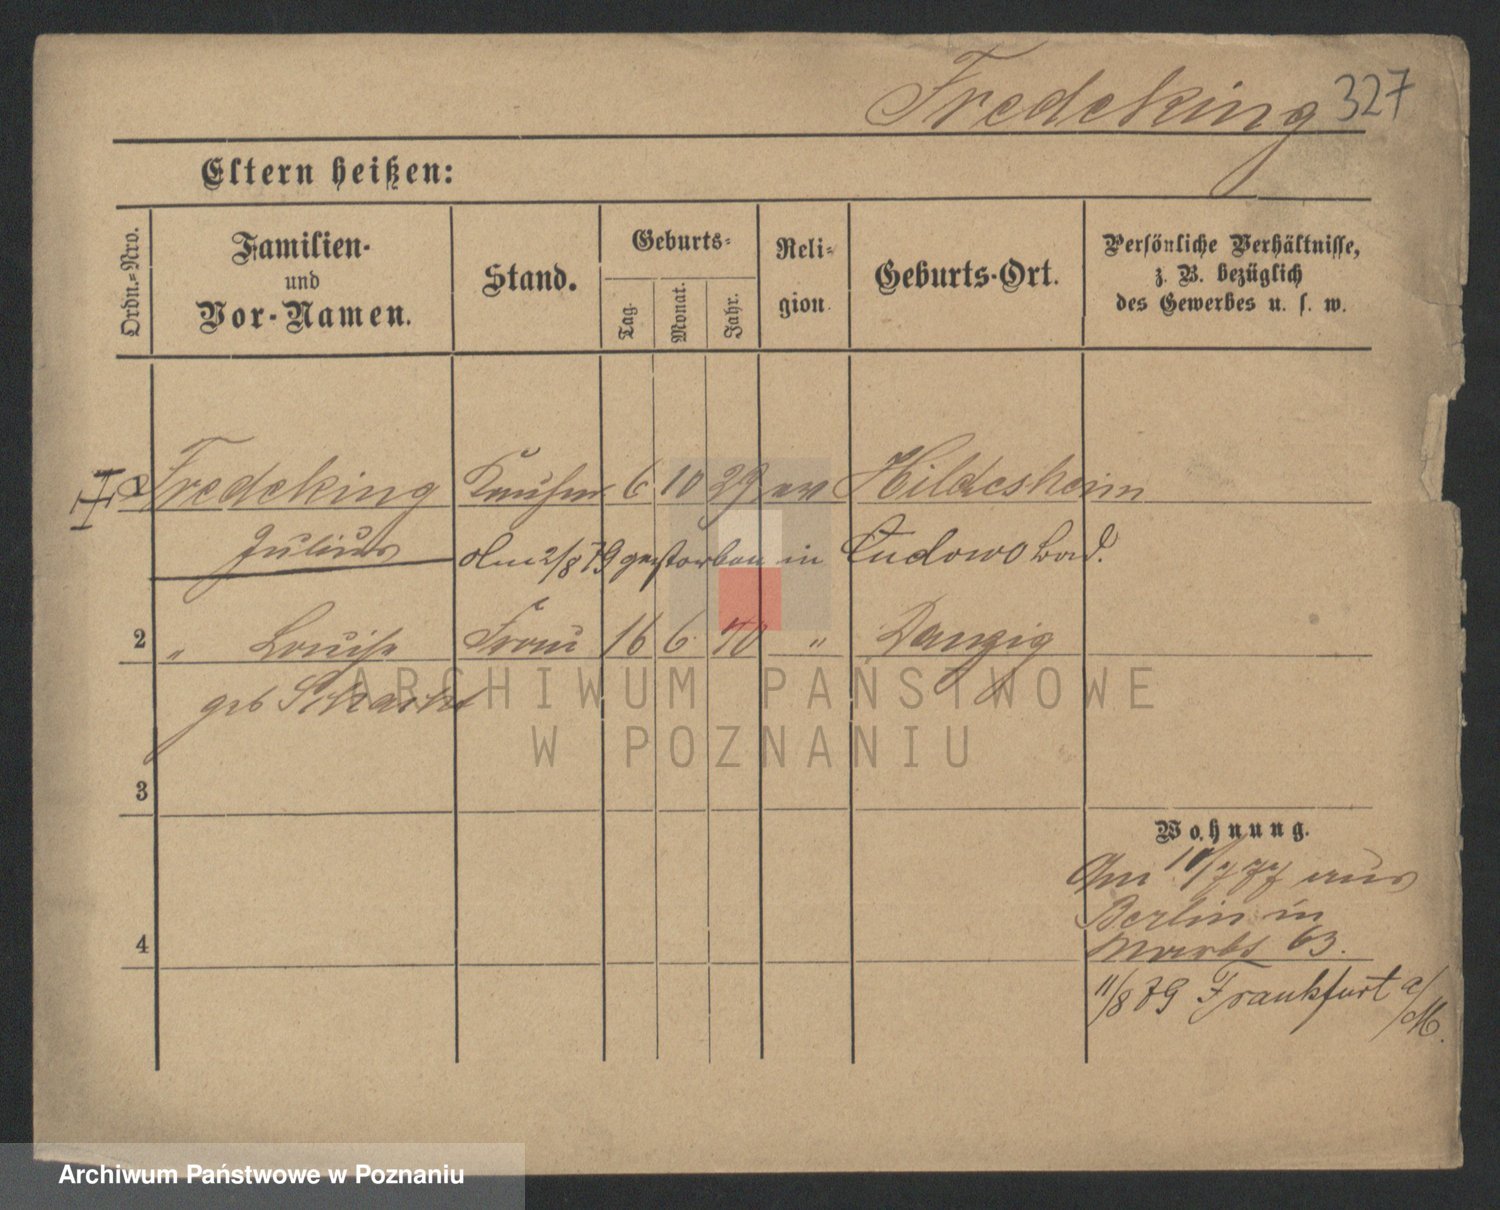 Fredeking 327
Eltern heißen:
Ordn.=Nro.
Familien-
und
Vor-Namen.
Stand.
Geburts=
Tag.
Monat.
Jahr.
Reli=
gion.
Geburts-Ort.
Persönliche Verhältnisse,
z. B. bezüglich
des Gewerbes u. s. w.
1 Fredeking Kaufm 6 10 29 ev Hildesheim
Julius Am 2/8 79 gestorben in Cudowo bad.
2 " Louise Frau 16 6 " Danzig
geb Schacht
3
Wohnung.
Am 10/7 77 aus
Berlin in
Markt 63.
4
11/8 79 Frankfurt a/M.
ARCHIWUM PAŃSTWOWE
W POZNANIU
Archiwum Państwowe w Poznaniu